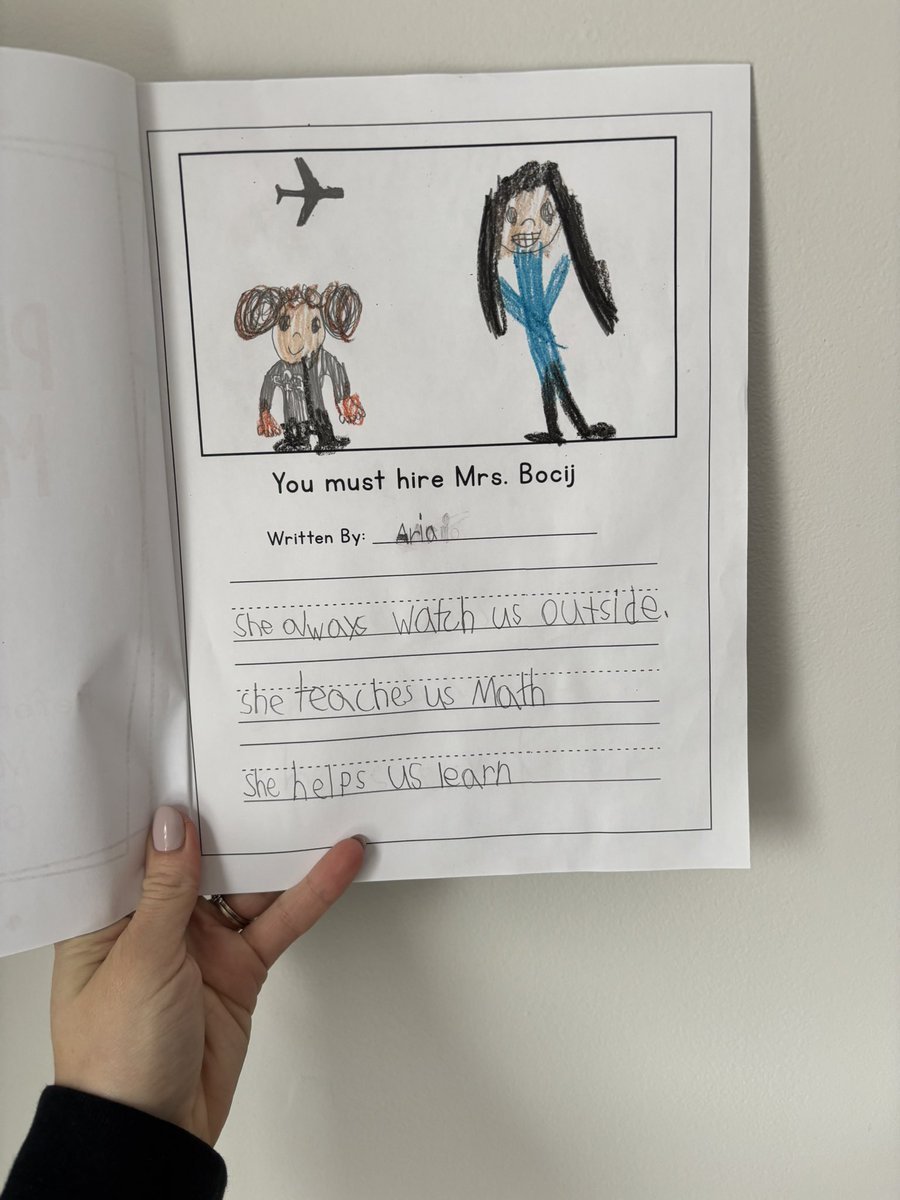 You must hire Mrs. Bocij
Written By: Aria
She always watch us outside.
She teaches us Math
She helps us learn